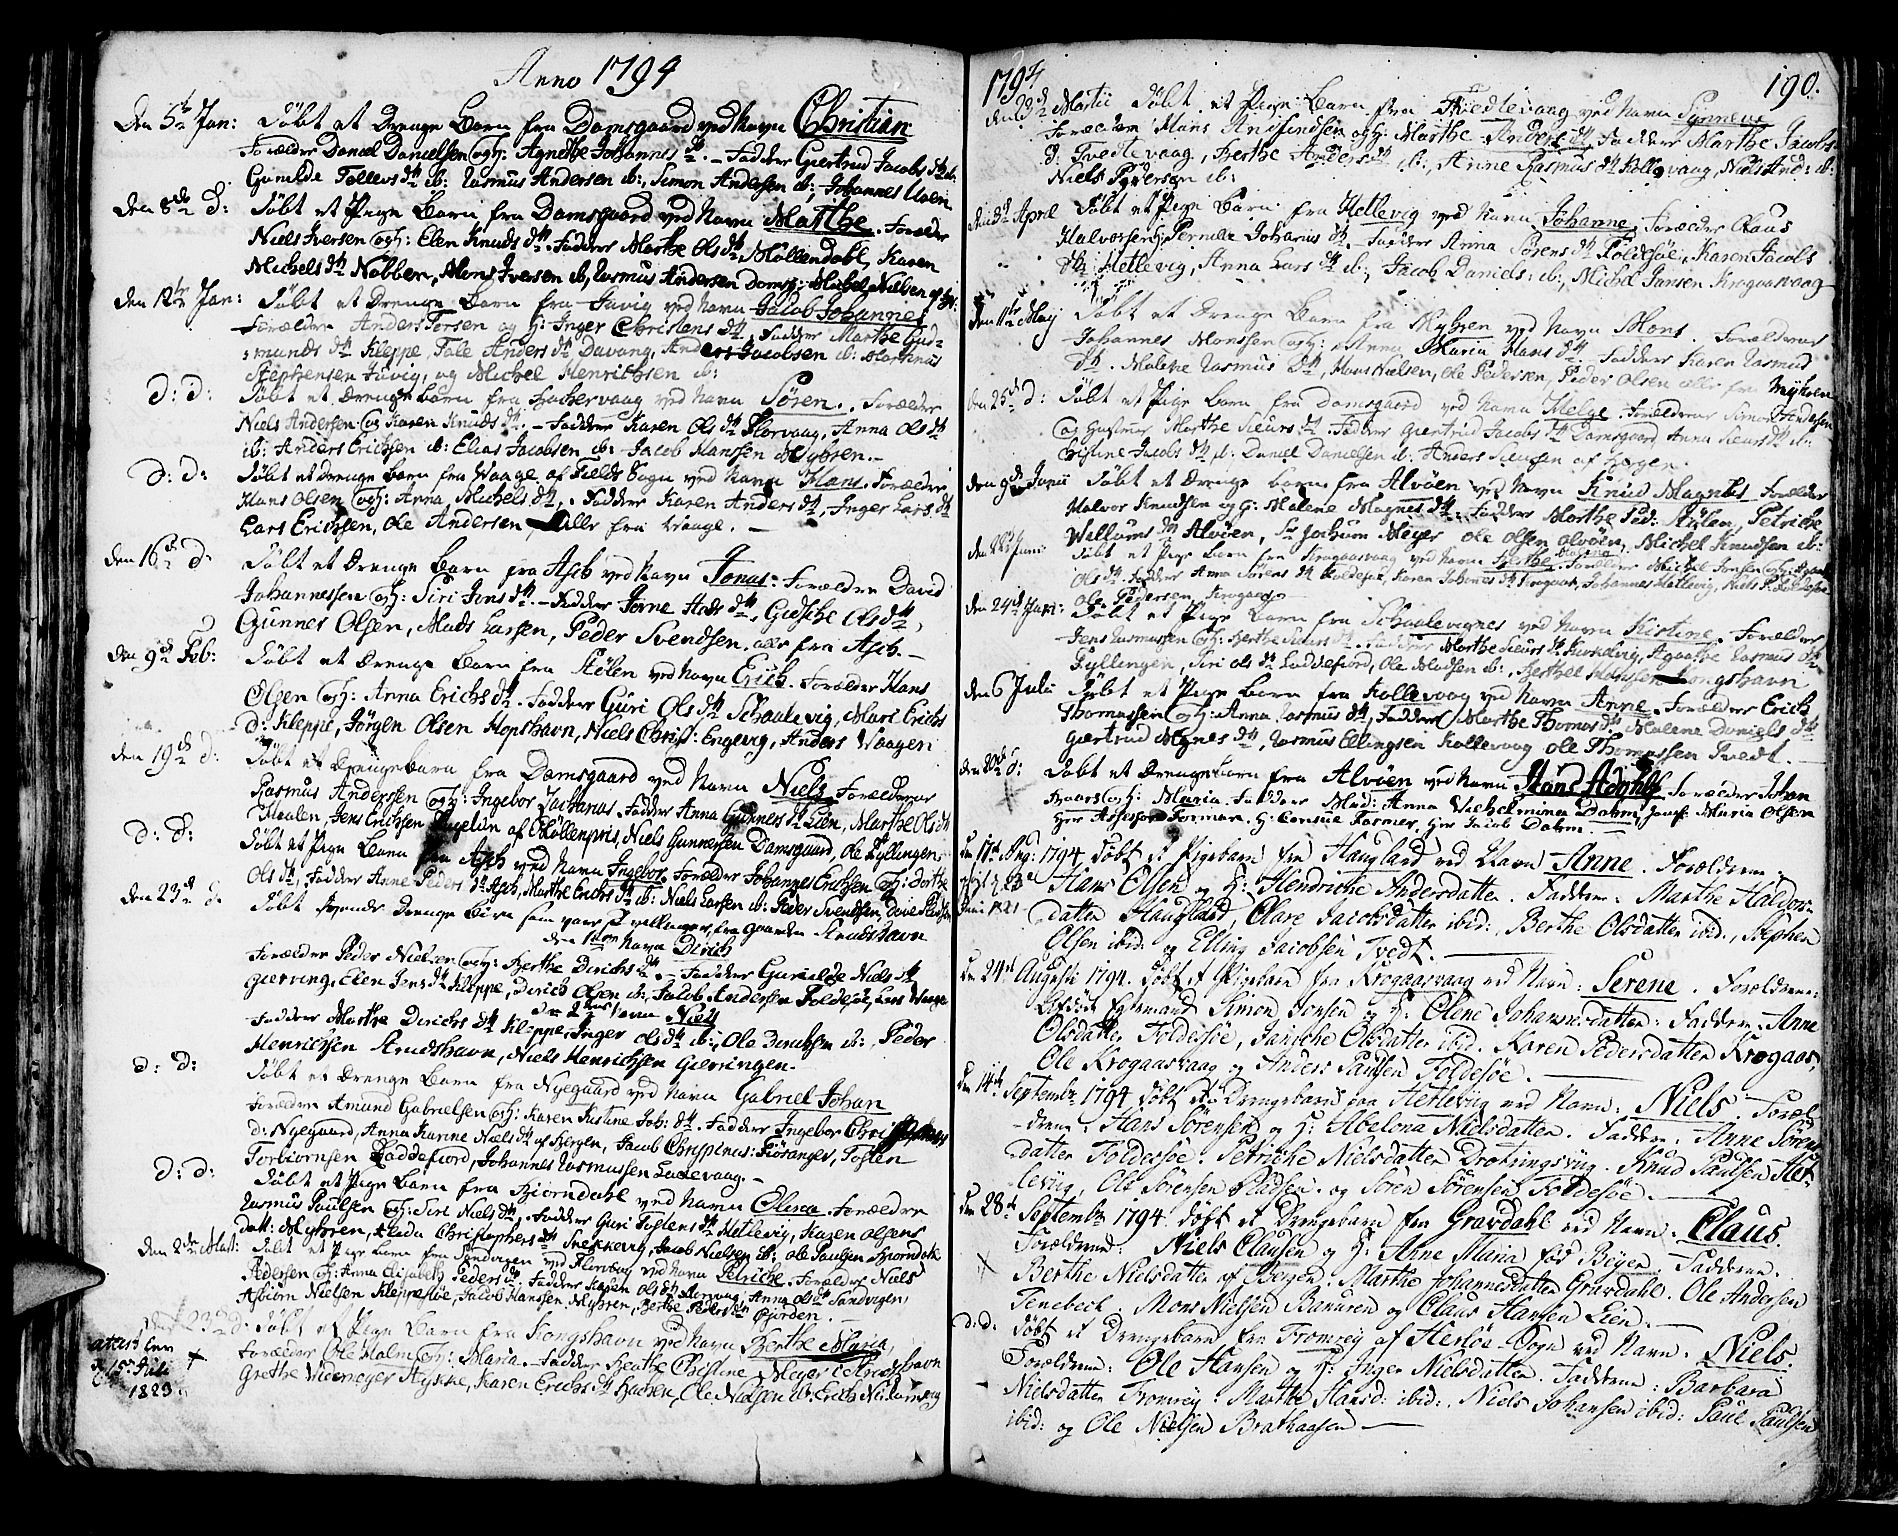 Anno 1794
Den 5te Jan: Döbt et Drenge Barn fra Damsgaard ved Navn Christian
Forældre Daniel Danielsen og H: Agnethe Johannes dtr. - Faddere Giertrud Jacobs dtr ib:
Gunilde Tollevs dtr ib: Rasmus Andersen ib:, Simon Andersen ib:, Johannes
den 8de d: Döbt et Pige Barn fra Damsgaard ved Navn Marthe. Forældre
Niels Iversen og H: Elen Knuds dtr. Faddere Marthe Ols dtr Möllendahl, Karen
Michels dtr Nöbben, Mons Iversen ib, Rasmus Andersen Damsg:, Michel Nielsen
den 12te Jan: Döbt et Drenge Barn fra Juvig ved Navn Jacob Johannes
Forældre Anders Torsen og H: Inger Christens dtr, Faddere Marthe Gud=
munds dtr Kleppe, Tale Anders dtr Davang, Anders Jacobsen ib: Martinus
Stephensen Juvig, og Michel Henrichsen ib:
d: d: Döbt et Drenge barn fra ved Navn Sören. Forældre
Niels Andersen og Karen Knuds dtr. - Faddere Karen Ols dtr Storvaag, Anna Ols dtr
ib: Anders Erichsen ib: Elias Jacobsen ib: Jacob Hanssen Myhren. -
d: d: Döbt et Drenge Barn fra Vaage af Fields Sogn ved Navn Hans. Forældre
Hans Olsen og H: Anna Michels dtr, Faddere Karen Anders dtr, Inger Lars dtr
Lars Erichsen, Ole Andersen, alle fra Vaage. -
den 16de d: Döbt et Drenge Barn fra Ask ved Navn Jonas. Forældre David
Johannessen og H: Siri Jens dtr. - Faddere Jorne Mads dtr, Gidsche Ols dtr,
Gunner Olsen, Mads Larsen, Peder Svendsen, alle fra Ask. -
den 9de Feb: Döbt et Drenge Barn fra Stölen ved Navn Erich. Forældre Hans
Olsen og H: Anna Erichs dtr. Faddere Guri Ols dtr Schaalevig, Mari Erichs
d: Kleppe, Jörgen Olsen Hopshavn, Niels Christ: Engevig, Anders Vaagen
den 19de d: Döbt et Drengebarn fra Damsgaard ved Navn Niels Forældrene
Rasmus Andersen og H: Ingebor Zacharias. Faddere Anna Gunners dtr Lien, Marthe Ols dtr
Melen, Jens Erichsen af Möllenpris, Niels Gunnersen Damsgaard, Ole Fyllingen
d: d: Döbt et Pige Barn fra Ask ved Navn Ingebor, Forældre Johannes Erichsen og H: Dorthe
Ols dtr, Faddere Anne Peders dtr Ask, Marthe Erichs dtr ib: Niels Larsen ib: Peder Svendsen,
den 23de d: Döbt tvende Drenge Börn som vare Tvillinger, fra Gaarden Strudshavn
den 1ste Navn Dirich
Forældre Peder Nielsen og H: Berthe Dirichs dtr - Faddere Gunilde Niels dtr
Gierving, Elen Jens dtr Kleppe, Dirich Olsen ib:, Jacob Andersen Foldesöe, Lars Vaage
den 2den Navn Niels
Faddere Marthe Dirichs dtr Kleppe, Inger Ols dtr ib:, Ole Dirichsen ib:, Peder
Henrichsen Strudshavn, Niels Henrichsen Gierningen.
d: d: Döbt et Drenge Barn fra Nyegaard ved Navn Gabriel Johan
Forældre Amund Gabrielsen og H: Karen Kistine Joh: dtr. Faddere Ingebor
d: Nyegaard, Anna Karine Niels dtr af Bergen, Jacob Chrispinus: Fiösanger, Tosten
Torbiörnsen Laddefiord, Johannes Rasmussen Ladevaag. -
d: d: Döbt et Pige Barn fra Biörndahl ved Navn Olina Forældre
Rasmus Paulsen og H: Siri Niels dtr, Faddere Guri Tostens dtr Hetlevig, Karen Olsens
datt: Myhren, Christophers dtr Snekkevig, Jacob Nielsen ib: Ole Paulsen Biörndahl
den 2den Mat: Döbt et Pige Barn fra Sandvigen ved Navn Petriche. Forældre Niels
Pedersen og H: Anna Elizabeth Peders dtr. Faddere Karen Ols dtr Storvaag, Anna Ols dtr Sandvigen,
Asbiörn Nielsen Kleppesöe, Jacob Hanssen, Myhren, Berthe Peders dtr Fiorden. -
den 23de d: Döbt et Pige Barn fra Kongshavn ved Navn Berthe Maria,
Forældre Ole Holm og H: Maria. - Faddere Berthe Christine Meyer
Grethe Widemeyer, Karen Erichs dtr Ole Nielsen ib: Erich
1823
1794 190.
den 23de Martii Döbt et Pige Barn fra Tvedtevaag ved Navn Synneve
Forældre Mans og H: Marthe Anders dtr Faddere Marthe Jacobs
d: Tvedtevaag, Berthe Anders dtr ib:, Anne Rasmus dtr Kollevaag, Niels And: ib:
Niels Pedersen ib:
April Döbt et Pige Barn fra Hetlevig ved Navn Johanne, Forældre Claus
Halvorsen H: Pernille Johannes dtr. Faddere Anna Sörens dtr Foldesöe, Karen Jacobs
dtr Hetlevig, Anna Lars dtr ib:, Jacob Daniels: ib:, Michel Jansen Krogaasvaag
den 11te May Döbt et Drenge Barn fra Myhren ved Navn Mons. Forældrene
Johannes Monssen og H: Anna Maria Hans dtr. Faddere Karen Rasmus
dtr. Malene Rasmus dtr, Hans Nielsen, Ole Pedersen, Peder Olsen alle fra Myhren
den 25de d: Döbt et Pige Barn fra Damsgaard ved Navn Helge. Forældrene Simon Andersen
og Hustrue Marthe Siurs dtr. Faddere Giertrud Jacobs dtr Damsgaard, Anna Siurs dtr ib:
Christine Jacobs dtr ib: Daniel Danielsen ib: Anders Siursen af Bergen.
den 9de Junii Döbt et Drenge Barn fra Alvöen ved Navn Knud Magnus Forældre
Halvor Knudsen og H: Malene Magnes dtr. Faddere Marthe Ped: Stölen, Petriche
Willums dtr Alvöen, Sr Jochum Meyer Ole Olsen Alvöen, Michel Knudsen ib:
den 22de Juni: Döbt et Pige Barn fra Krogaasvaag ved Navn Berthe Forældre Michel Jensen og H:
Ols dtr. Faddere Anna Sörens dtr Foldesöe, Karen Johannes dtr Krogaas, Johannes Hetlevig, Niels Foldesöe
Ole Pedersen, Krogaas
den 24de Juni: Döbt et Pige Barn fra Schaalevignes ved Navn Kistine. Forældre
Jens Rasmussen og H: Berthe Siurs dtr. Faddere Marthe Siurs dtr Agathe Rasmus dtr
Fyllingen, Siri Ols dtr Laddefiord, Ole Madsen ib:, Berthel Hansen Kongshavn
den 6 Julii Döbt et Pige Barn fra Kollevaag ved Navn Anne. Forældre Erich
Thomassen og H: Anna Rasmus dtr, Faddere Marthe Thomas dtr, Malene Daniels dtr
Giertrud Magnes dtr, Rasmus Ellingsen Kollevaag Ole Thomassen Tvedt. -
den 20de d: Döbt et Drengebarn fra Alvöen ved Navn Hans Adolph Forældre Johan
og H: Maria. Faddere Mad: Anna Vilhelmina Dahm, Jomf: Maria Olsen
Herr Assessor Forman, H: Consul Farmer, Hr Jacob Dahm. -
d 17de Aug: 1794 döbt et Pigebarn fra Haugland ved Navn Anne. Forældrene
Hans Olsen og H: Hendriche Andersdatter. Faddere: Marthe Haldors
datter Haugland, Clare Jacobsdatter ibid: Berthe Olsdatter ibid:, Stephen
Olsen ibid: og Elling Jacobsen Tvedt.
d 24de Augusti 1794. döbt et Pigebarn fra Krogaasvaag ved Navn: Serene. Forældrene:
Simon Jonsen og H: Olene Johannisdatter: Faddere: Anne
Olsdatter Foldesöe, Janiche Olsdatter ibid: Karen Pedersdatter Krogaas,
Ole Krogaasvaag og Anders Paulsen Foldesöe.
d 14de Septembr 1794 döbt et Drengebarn fra Hetlevig ved Navn: Niels. Foræl
drene: Hans Sörensen og H: Abelona Nielsdatter. Faddere: Anne Sörens
datter Foldesöe: Petriche Nielsdatter Drotningsvüg. Knud Paulsen Het-
levüg, Ole Sörensen Pladsen. og Sören Sörensen Foldesöe.
d 28de Septembr 1794. döbt et Drengebarn fra Gravdahl ved Navn: Claus.
Forældrene: Niels Clausen og H: Anne Maria föd Beyer. Faddere:
Berthe Nielsdatter af Bergen. Marthe Johannesdatter Gravdahl. Ole Andersen
Tenebech. Mons Nielsen Banuren og Claus Hansen Lien.
d: d: döbt et Drengebarn fra Tromröy af Herlöe-Sogn ved Navn: Niels.
Forældrene: Ole Hansen og H: Inger Nielsdatter. Faddere: Barbara
Nielsdatter Tromröy. Marthe Hansd: ibid:. Niels Johansen ibid: Paul Paulsen
ibid: og Ole Nielsen Brathaasen